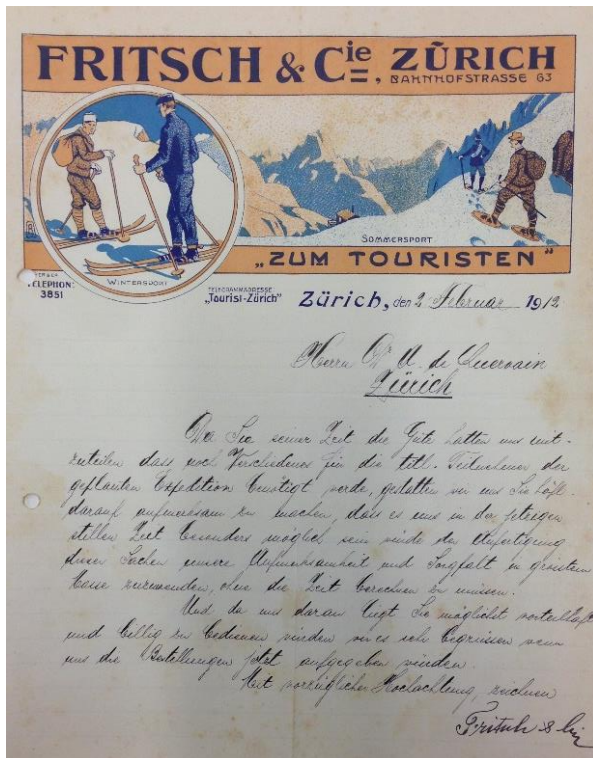 FRITSCH & Cie, ZÜRICH
BAHNHOFSTRASSE 63
SOMMERSPORT
WINTERSPORT
„ZUM TOURISTEN“
TELEPHON:
3851
TELEGRAMMADRESSE
„Tourist-Zürich“
Zürich, den 2 Februar 1912
Herrn Dr A. de Quervain
Zürich
Da Sie seiner Zeit die Güte hatten uns mit-
zuteilen dass noch Verschiedenes für die titl. Teilnehmer der
geplanten Expedition benötigt werde, gestatten wir uns Sie höfl.
darauf aufmerksam zu machen, dass es uns in der jetzigen
stillen Zeit besonders möglich sein würde der Anfertigung
dieser Sachen unsere Aufmerksamkeit und Sorgfalt in grösstem
Masse zuzuwenden, ohne die Zeit berechnen zu müssen.
Und da uns daran liegt Sie möglichst vorteilhaft
und billig zu bedienen würden wir es sehr begrüssen wenn
uns die Bestellungen jetzt aufgegeben würden.
Mit vorzüglicher Hochachtung, zeichnen
Fritsch & Cie